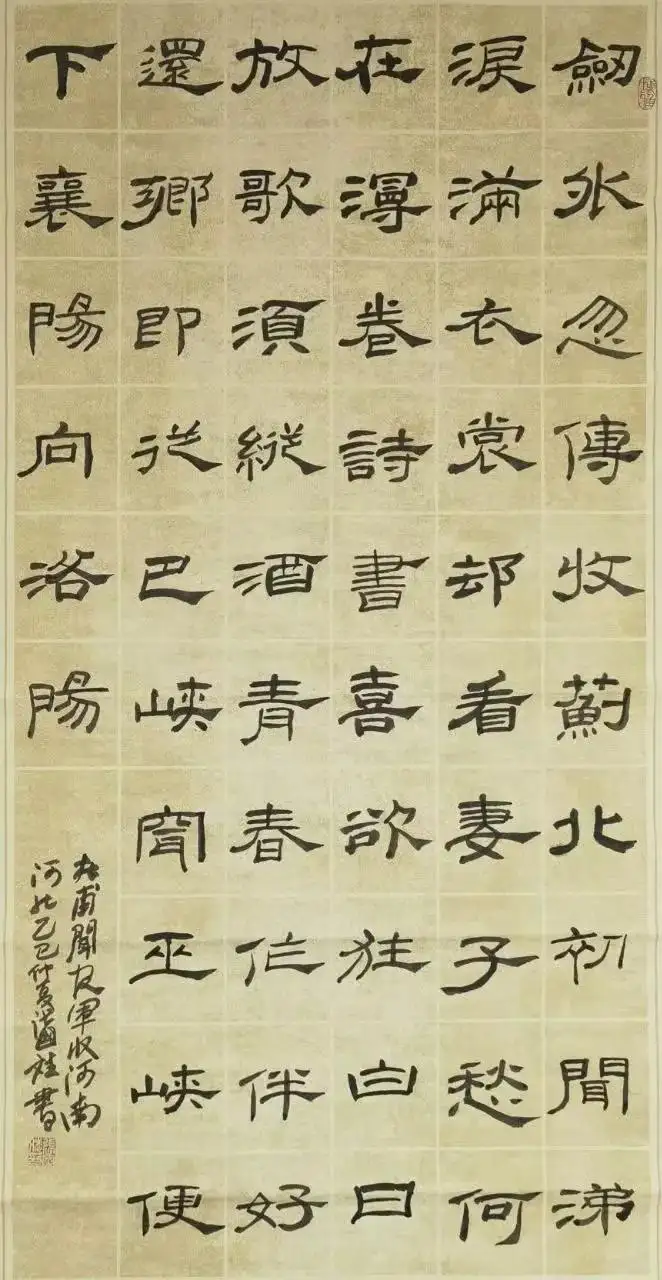 劒外忽傳收薊北初聞涕
淚滿衣裳却看妻子愁何
在漫卷詩書喜欲狂白日
放歌須縱酒青春作伴好
還鄉即從巴峽穿巫峽便
下襄陽向洛陽
杜甫聞官軍收河南
河北乙巳仲夏桂書